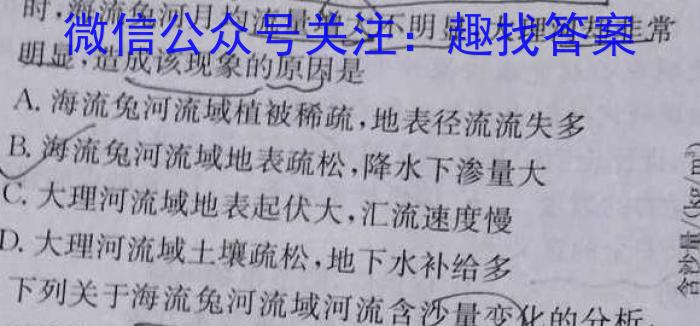 时,海流兔河月均流量
不明显,大理河却非常
微信公众号关注：趣找答案
明显,造成该现象的原因是
A. 海流兔河流域植被稀疏,地表径流流失多
B. 海流兔河流域地表疏松,降水下渗量大
C. 大理河流域地表起伏大,汇流速度慢
D. 大理河流域土壤疏松,地下水补给多
下列关于海流兔河流域河流含沙量变化的分析,
含沙量/(kg/m³)